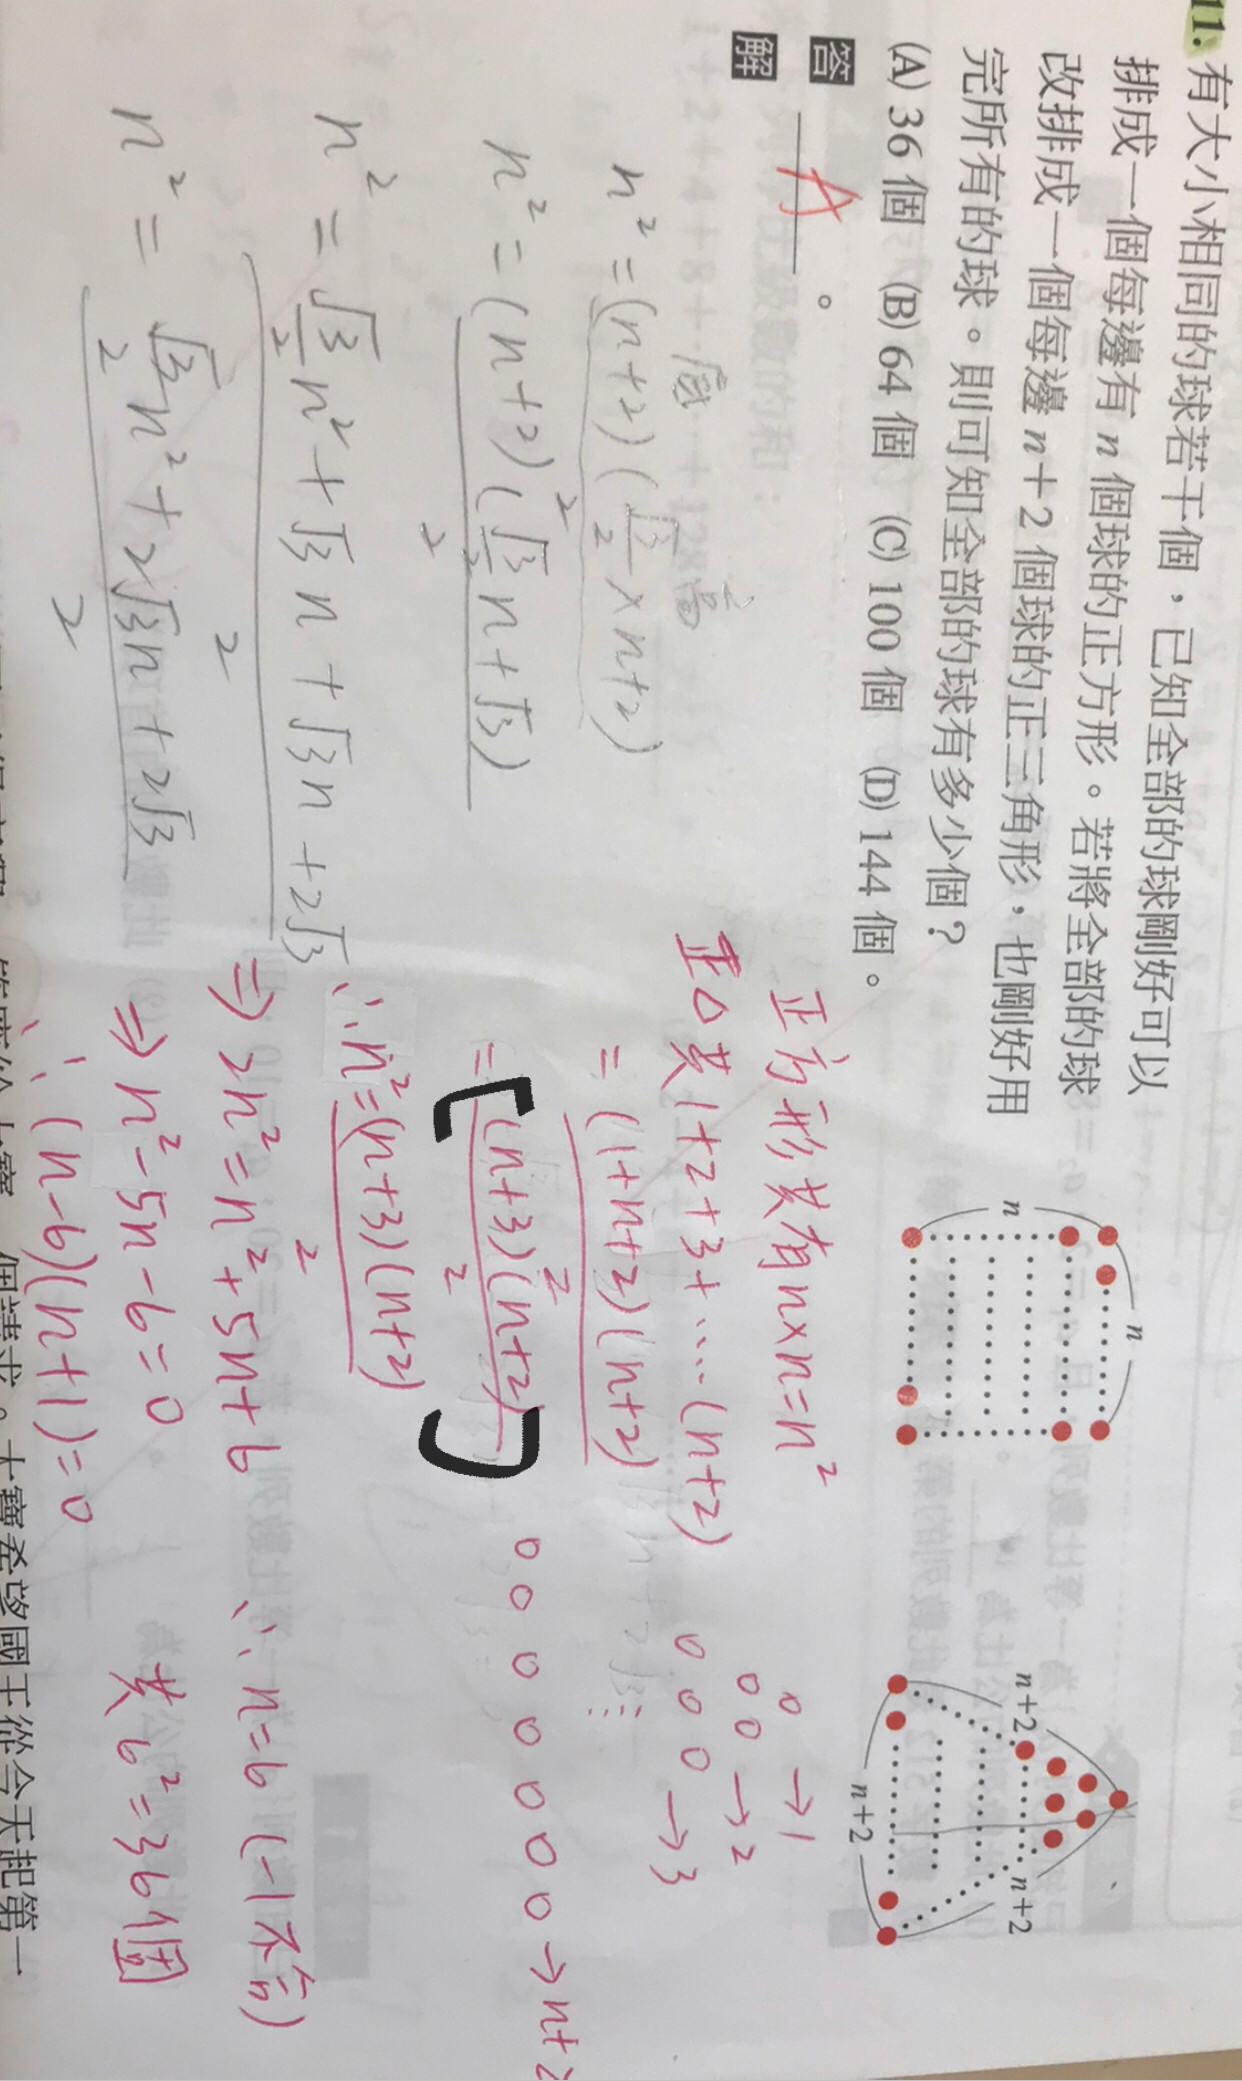 11. 有大小相同的球若干個，已知全部的球剛好可以
排成一個每邊有 n 個球的正方形。若將全部的球
改排成一個每邊 n+2 個球的正三角形，也剛好用
完所有的球。則可知全部的球有多少個？
(A) 36 個 (B) 64 個 (C) 100 個 (D) 144 個。
答 A 。
解
n
n
n+2
n+2
n+2
底 高
n² = (n+2)(√3/2 × n+2)
2
n² = (n+2)(√3/2 n+√3)
2
n² = √3/2 n² + √3 n + √3 n + 2√3
2
n² = √3/2 n² + 2√3 n + 2√3
2
正方形共有 n×n=n²
正△共 1+2+3+....(n+2)
= (1+n+2)(n+2)
2
= [(n+3)(n+2)]
2
∴ n² = (n+3)(n+2)
2
⇒ 2n² = n²+5n+6
⇒ n²-5n-6=0
∴ (n-6)(n+1)=0
0 → 1
0 0 → 2
0 0 0 → 3
0 0 0 0 0 0 0 → n+2
∴ n=6 (-1不合)
共 6²=36個